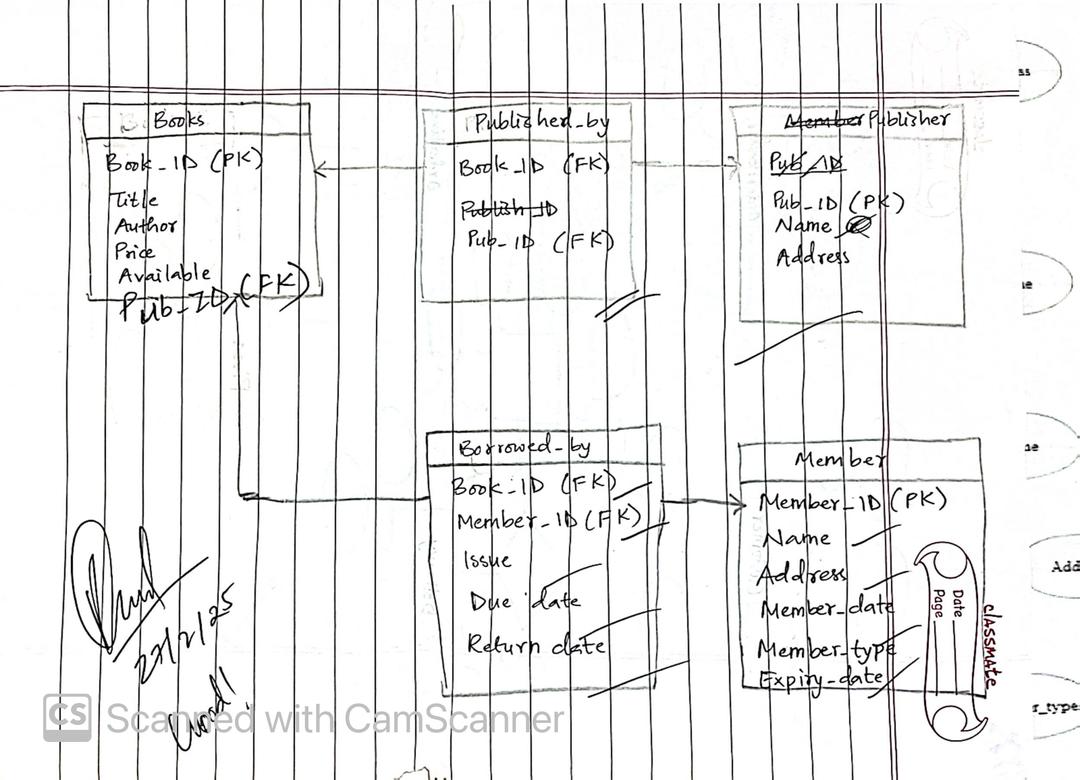 Books
Book_ID (PK)
Title
Author
Price
Available
Pub-ID (FK)
Published_by
Book_ID (FK)
Publish_ID
Pub_ID (FK)
Member Publisher
Pub_ID
Pub_ID (PK)
Name
Address
Borrowed_by
Book_ID (FK)
Member_ID (FK)
Issue
Due date
Return date
Member
Member_ID (PK)
Name
Address
Member_date
Member_type
Expiry_date
classmate
Date
Page
Good!
CS Scanned with CamScanner
ss
e
ue
Add
r_type